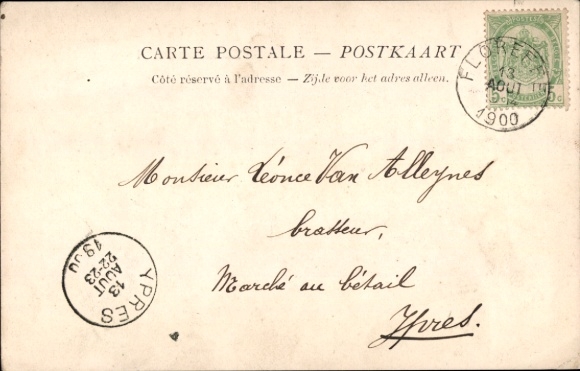 CARTE POSTALE — POSTKAART
Côté réservé à l'adresse — Zijde voor het adres alleen.
FLOREFFE
13
AOUT
1900
5c 5c
Monsieur Léonce Van Alleynes
brasseur,
Marché au bétail
Ypres.
YPRES
13
AOUT
22-23
1900